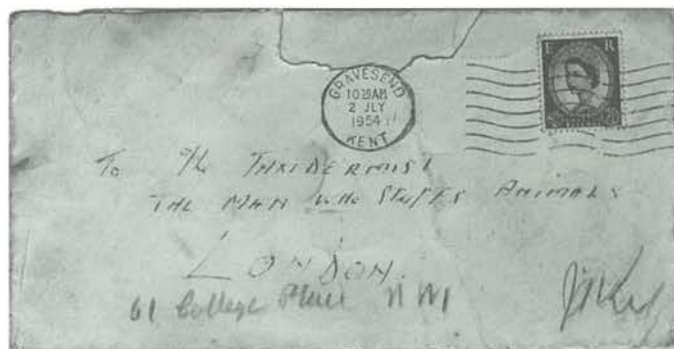 GRAVESEND
10 15 AM
2 JLY
1954
KENT
E R
To The TAXIDERMIST
THE MAN who STUFFS ANIMALS
LONDON.
61 College Place NW1